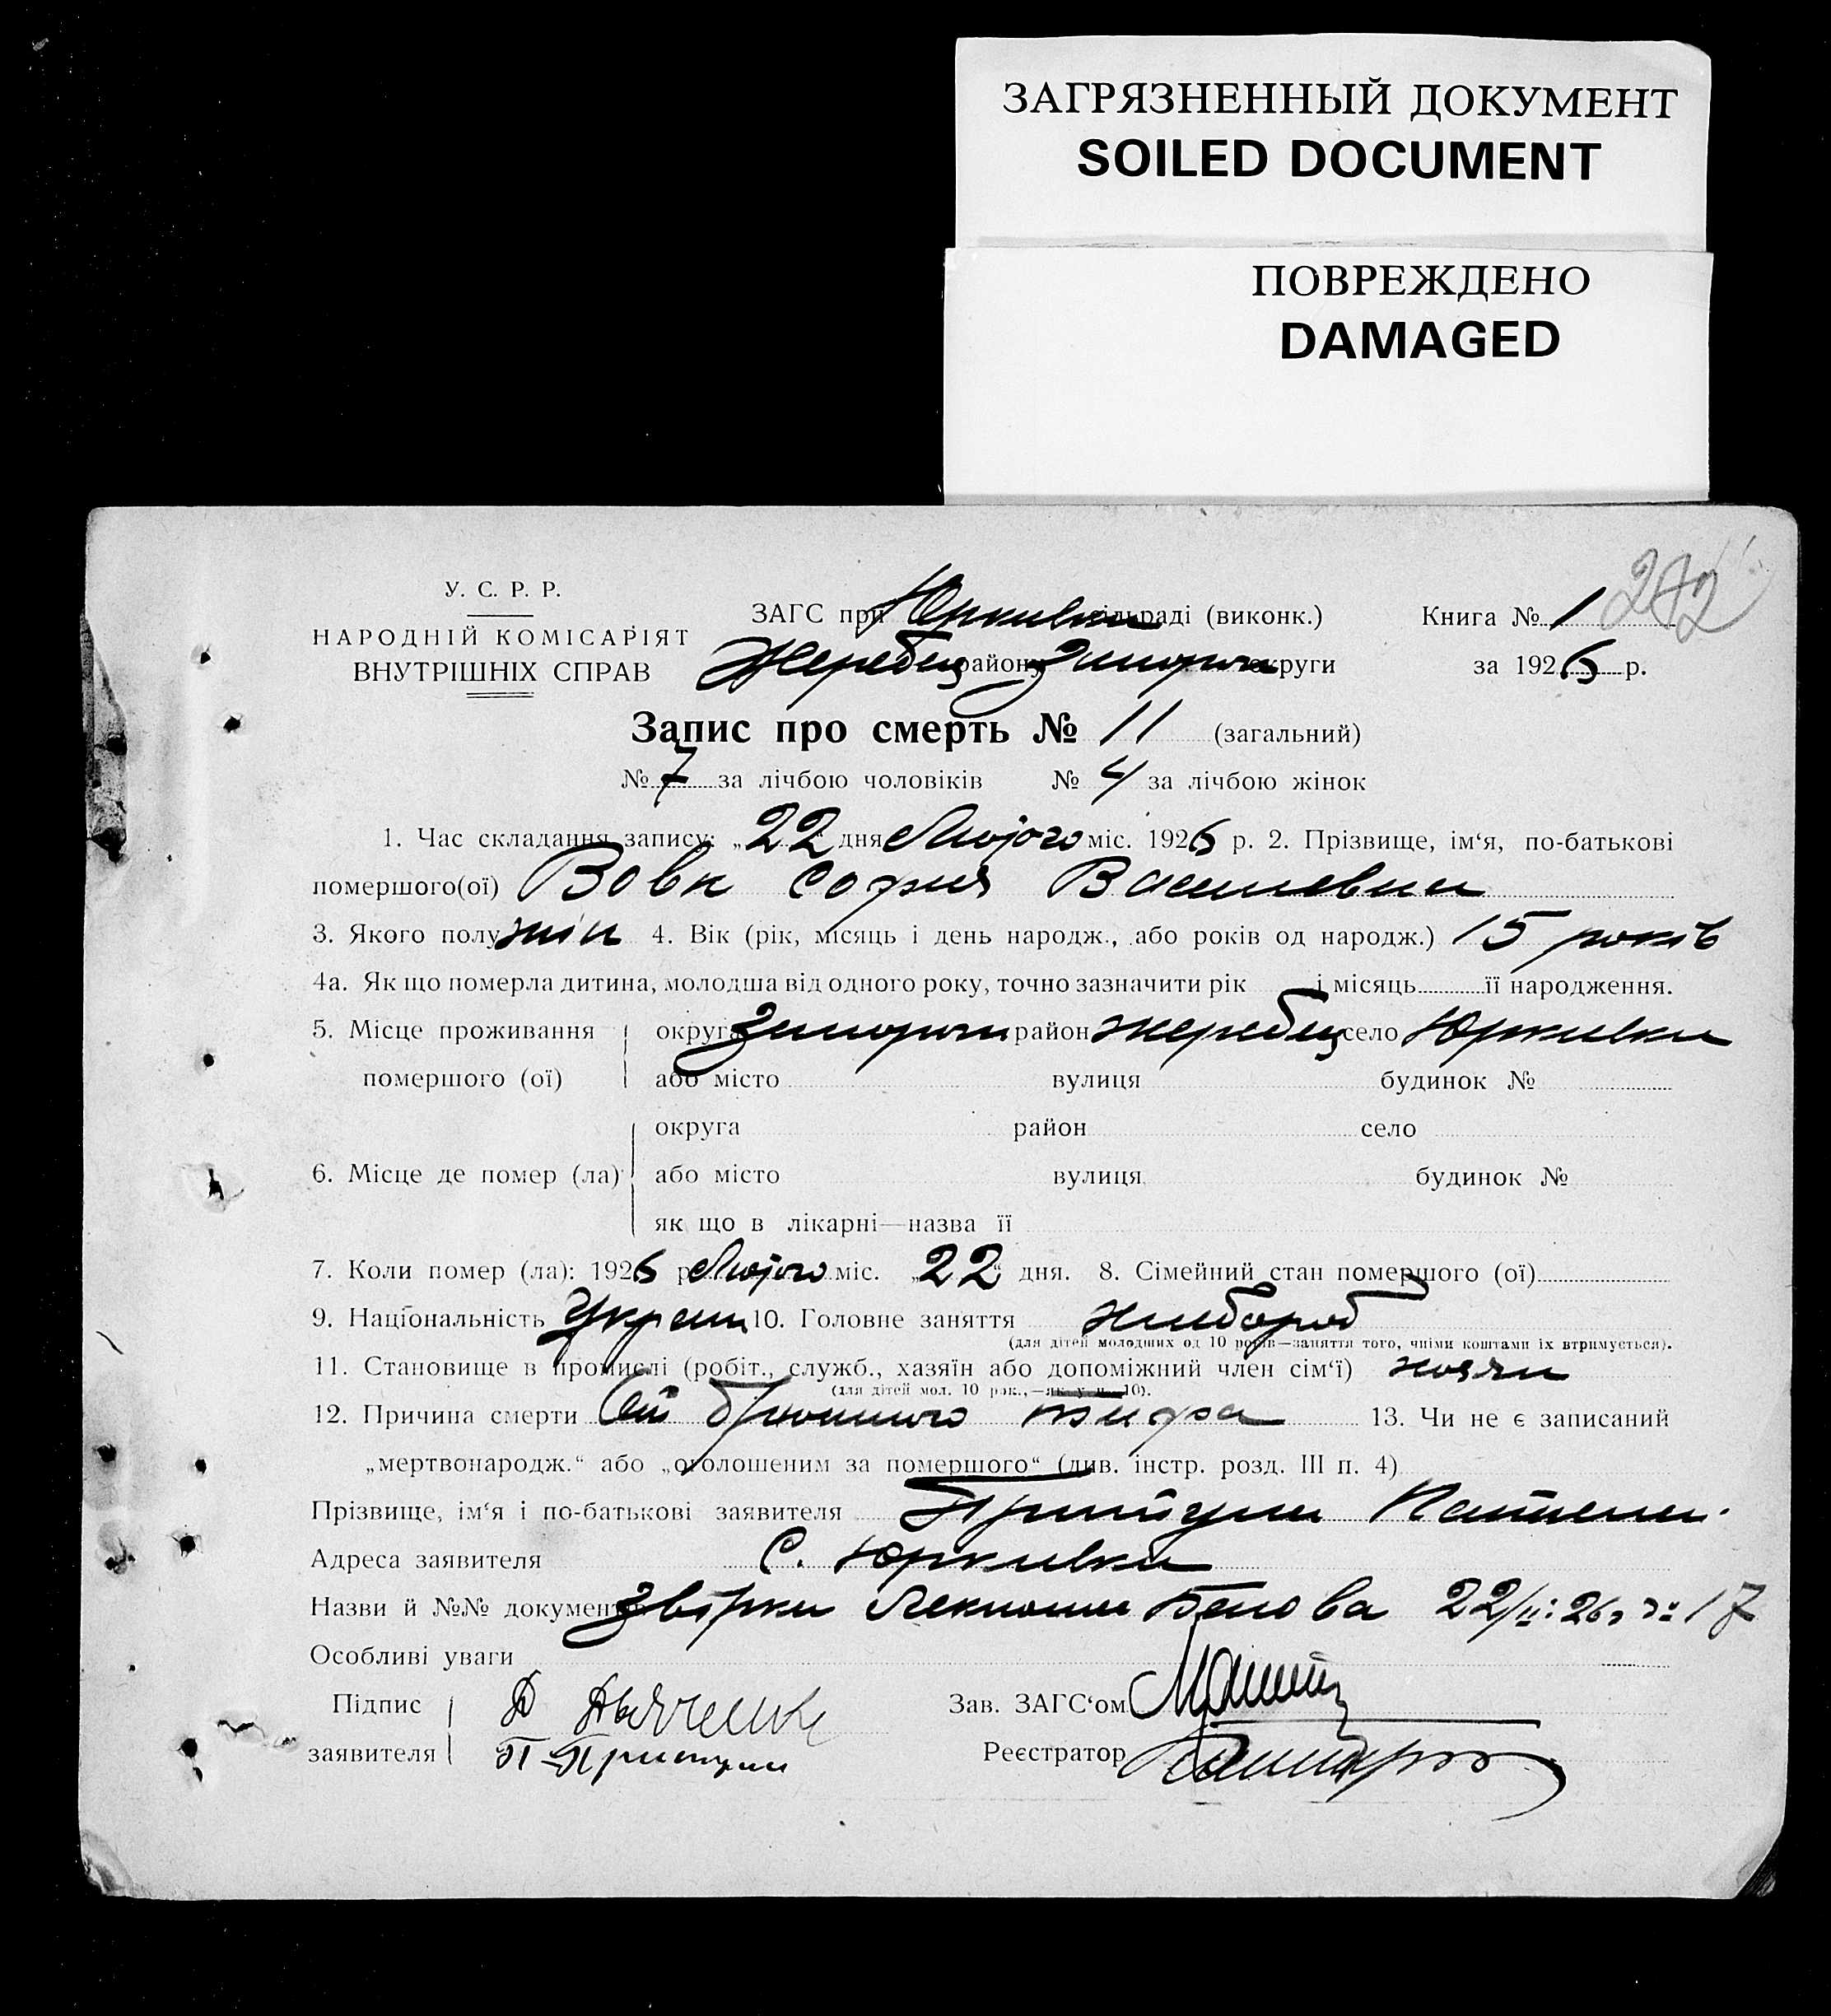 ЗАГРЯЗНЕННЫЙ ДОКУМЕНТ
SOILED DOCUMENT
ПОВРЕЖДЕНО
DAMAGED
212
У. С. Р. Р.
НАРОДНІЙ КОМІСАРІЯТ
ВНУТРІШНІХ СПРАВ
ЗАГС при Юркивки сільраді (виконк.) Книга № 1
Жеребец району Запорож округи за 1926 р.
Запис про смерть № 11 (загальний)
№ 7 за лічбою чоловіків № 4 за лічбою жінок
1. Час складання запису: „22“ дня Лютого міс. 1926 р. 2. Прізвище, ім‘я, по-батькові
помершого(ої) Вовк София Василевна
3. Якого полу жін 4. Вік (рік, місяць і день народж., або років од народж.) 15 років
4а. Як що померла дитина, молодша від одного року, точно зазначити рік і місяць її народження.
5. Місце проживання округа Запорож район Жеребец село Юркивка
помершого (ої) або місто вулиця будинок №
округа район село
6. Місце де помер (ла) або місто вулиця будинок №
як що в лікарні—назва її
7. Коли помер (ла): 1926 р. Лютого міс. „22“ дня. 8. Сімейний стан помершого (ої)
9. Національність Україн 10. Головне заняття хлібороб
(для дітей молодших од 10 років—заняття того, чиїми коштами їх втримується).
11. Становище в промислі (робіт., служб., хазяїн або допоміжний член сім‘ї)
(для дітей мол. 10 рок.,—як у п. 10).
12. Причина смерти От брюшного тифа 13. Чи не є записаний
„мертвонародж.“ або „оголошеним за помершого“ (див. інстр. розд. III п. 4)
Прізвище, ім‘я і по-батькові заявителя Притула
Адреса заявителя С. Юркивка
Назви й №№ документів 22/II 26 17
Особливі уваги
Підпис Д Дьяченко Зав. ЗАГС‘ом
заявителя П Притула Реєстратор